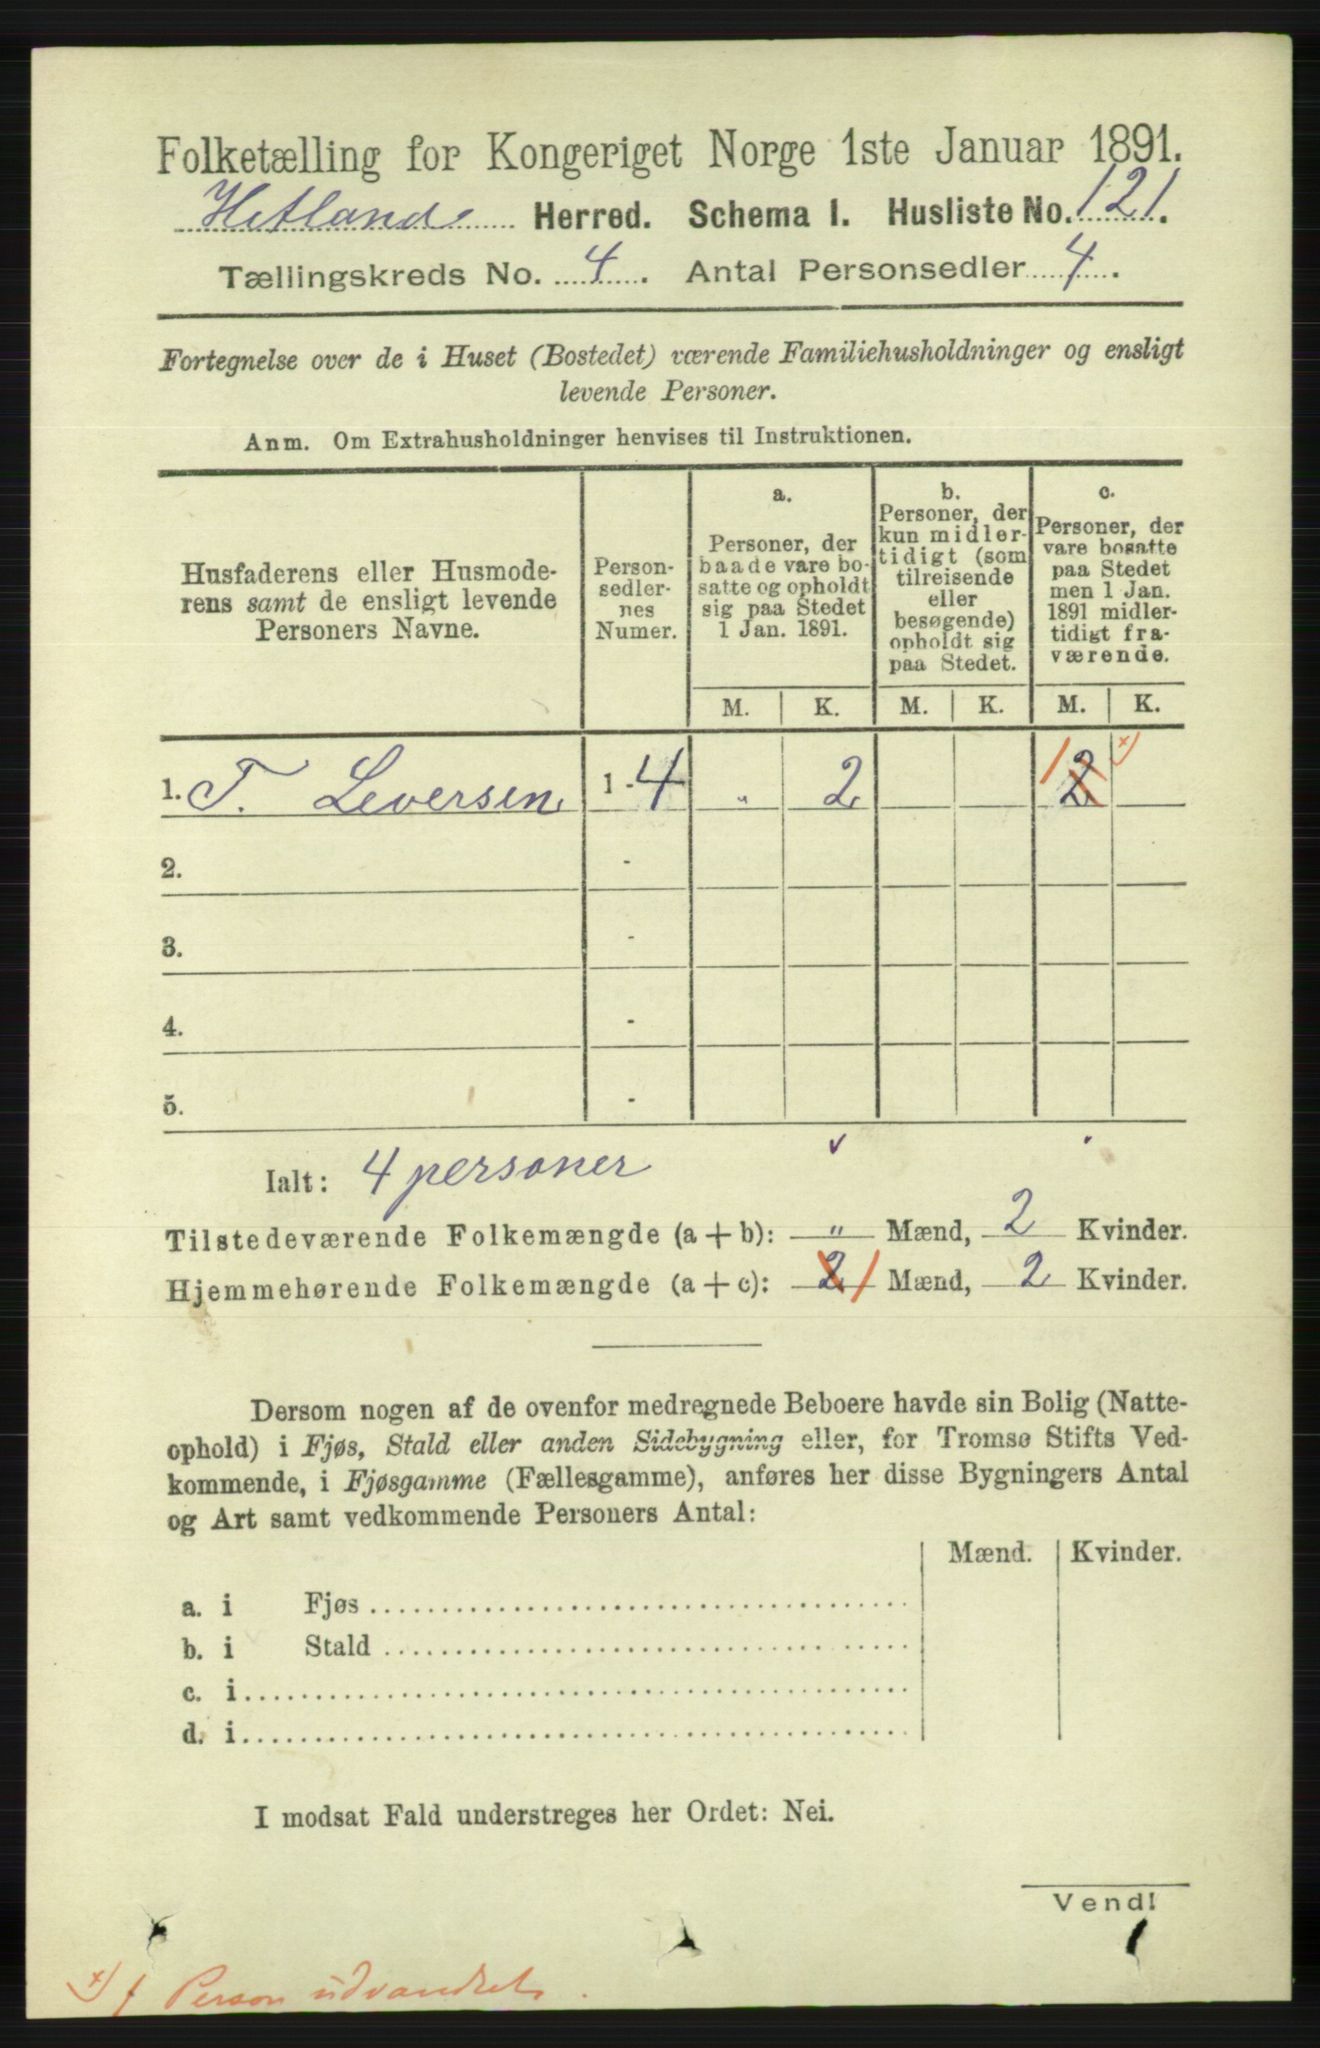 Folketælling for Kongeriget Norge 1ste Januar 1891.
Hetland Herred. Schema I. Husliste No. 121.
Tællingskreds No. 4. Antal Personsedler 4.
Fortegnelse over de i Huset (Bostedet) værende Familiehusholdninger og ensligt
levende Personer.
Anm. Om Extrahusholdninger henvises til Instruktionen.
Husfaderens eller Husmode-
rens samt de ensligt levende
Personers Navne.
Person-
sedler-
nes
Numer.
a.
Personer, der
baade vare bo-
satte og opholdt
sig paa Stedet
1 Jan. 1891.
b.
Personer, der
kun midler-
tidigt (som
tilreisende
eller
besøgende)
opholdt sig
paa Stedet.
c.
Personer, der
vare bosatte
paa Stedet
men 1 Jan.
1891 midler-
tidigt fra-
værende.
M. K. M. K. M. K.
1. T. Leversen 1 - 4 „ 2 1 2 x)
2. -
3. -
4. -
5. -
Ialt: 4 personer
Tilstedeværende Folkemængde (a + b): „ Mænd, 2 Kvinder.
Hjemmehørende Folkemængde (a + c): 2 1 Mænd, 2 Kvinder.
Dersom nogen af de ovenfor medregnede Beboere havde sin Bolig (Natte-
ophold) i Fjøs, Stald eller anden Sidebygning eller, for Tromsø Stifts Ved-
kommende, i Fjøsgamme (Fællesgamme), anføres her disse Bygningers Antal
og Art samt vedkommende Personers Antal:
Mænd. Kvinder.
a. i Fjøs
b. i Stald
c. i
d. i
I modsat Fald understreges her Ordet: Nei.
Vend!
x) 1 Person udvandret.